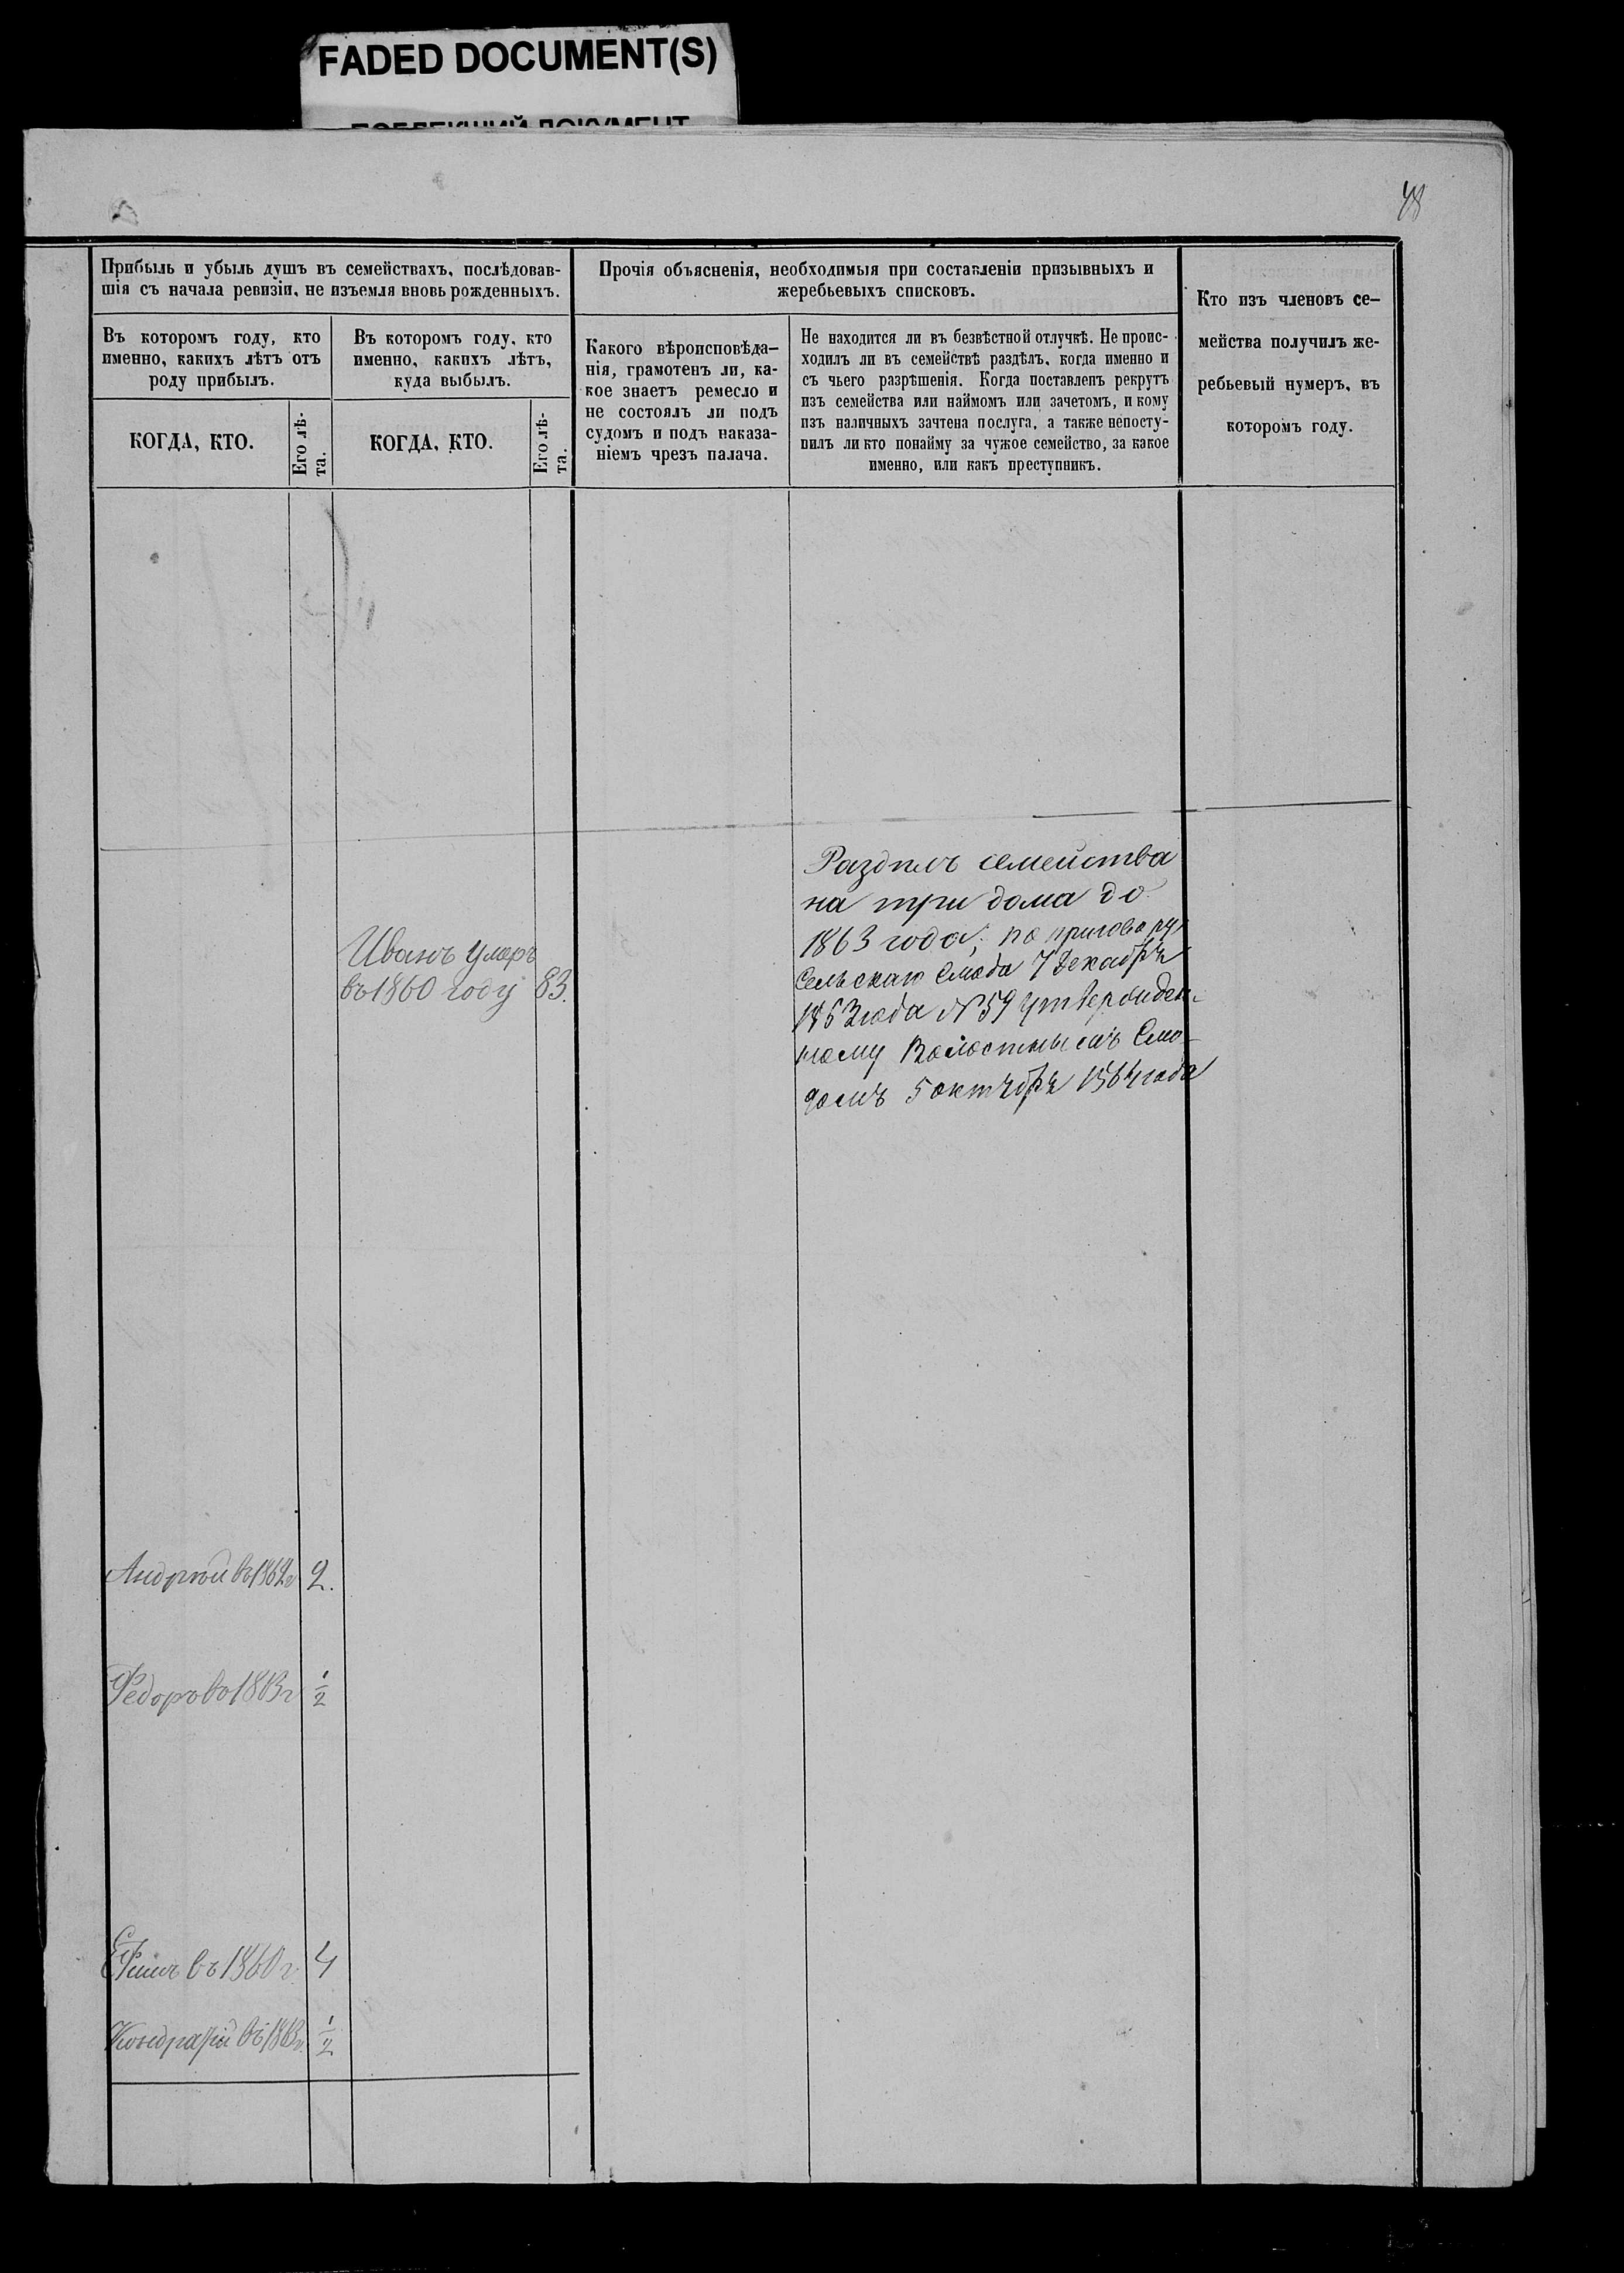 FADED DOCUMENT(S)
48
Прибыль и убыль душъ въ семействахъ, послѣдовав-
шія съ начала ревизіи, не изъемля вновь рожденныхъ.
Въ которомъ году, кто
именно, какихъ лѣтъ отъ
роду прибылъ.
КОГДА, КТО.
Его лѣ-
та.
Въ которомъ году, кто
именно, какихъ лѣтъ,
куда выбылъ.
КОГДА, КТО.
Его лѣ-
та.
Прочія объясненія, необходимыя при составленіи призывныхъ и
жеребьевыхъ списковъ.
Какого вѣроисповѣда-
нія, грамотенъ ли, ка-
кое знаетъ ремесло и
не состоялъ ли подъ
судомъ и подъ наказа-
ніемъ чрезъ палача.
Не находится ли въ безвѣстной отлучкѣ. Не проис-
ходилъ ли въ семействѣ раздѣлъ, когда именно и
съ чьего разрѣшенія. Когда поставленъ рекрутъ
изъ семейства или наймомъ или зачетомъ, и кому
изъ наличныхъ зачтена послуга, а также непосту-
пилъ ли кто понайму за чужое семейство, за какое
именно, или какъ преступникъ.
Кто изъ членовъ се-
мейства получилъ же-
ребьевый нумеръ, въ
которомъ году.
Раздѣлъ семейства
на три дома до
1863 года, по приговору
Сельскаго Схода 7 Декабря
1863 года № 59 утвержден-
ному Волостнымъ Схо-
домъ 5 октября 1864 года
Иванъ умеръ
въ 1860 году 83.
Андрѣй въ 1862 г 2.
Федоръ въ 1863 г 1/2
Ефимъ въ 1860 г. 4
Кондратій въ 1863 г. 1/2